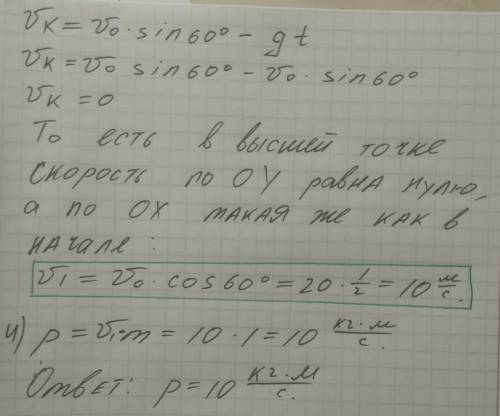 υк = υ₀ · sin60° − gt
υк = υ₀ sin60° − υ₀ · sin60°
υк = 0
То есть в высшей точке
скорость по OY равна нулю,
а по OX такая же как в
начале :
υ₁ = υ₀ · cos60° = 20 · 1/2 = 10 м/с.
4) p = υ₁·m = 10 · 1 = 10 кг·м/с.
Ответ: p = 10 кг·м/с.